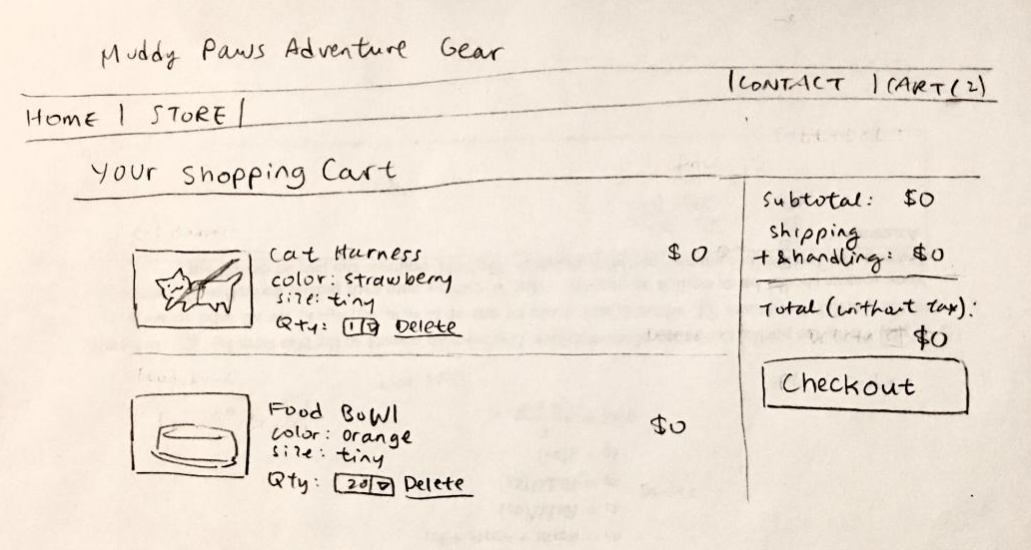 Muddy Paws Adventure Gear
|CONTACT |CART(2)
HOME | STORE|
Your Shopping Cart
Cat Harness
color: Strawberry
size: tiny
Qty: 1 Delete
$0
Food Bowl
color: orange
size: tiny
Qty: 20 Delete
$0
Subtotal: $0
shipping
+ & handling: $0
Total (without tax):
$0
Checkout